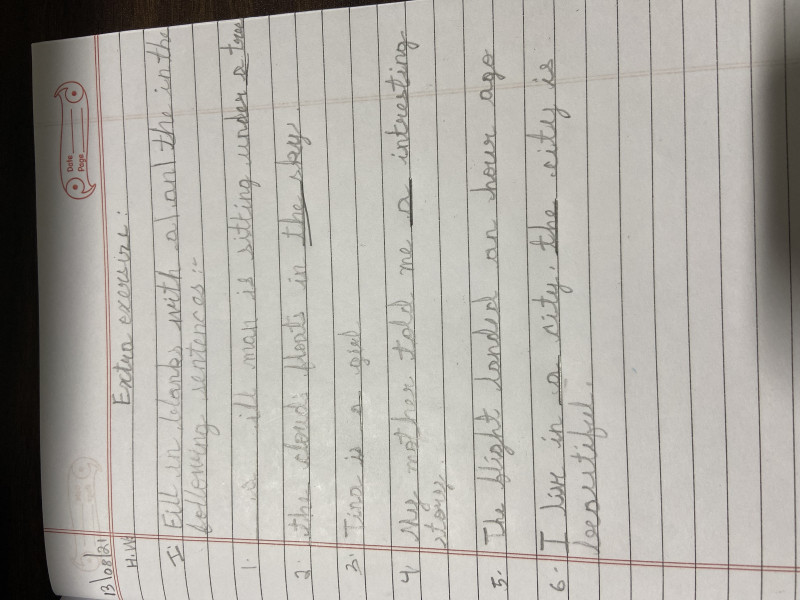 Date
Page
13/08/21
H.W.
Extra exercise:
I. Fill in blanks with a/an/ the in the
following sentences:-
1. a ill man is sitting under a tree
2. the clouds floats in the sky
3. Tina is a girl
4. My mother told me a intresting
story.
5. The flight landed an hour ago
6. I live in a city. the city is
beautiful.